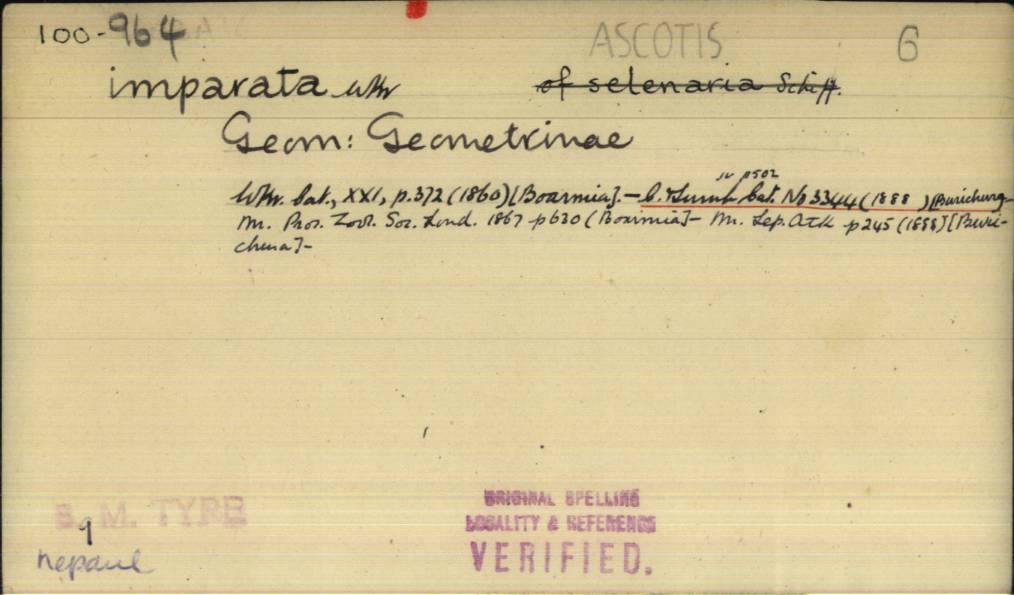 100-964 ASCOTIS 6
imparata Wkr of selenaria Schiff.
Geom: Geometrinae
IV p502
Wkr. Cat., XXI, p.372 (1860) [Boarmia]. — C. & Swinh Cat. No 3344 (1888) [Burichura—
Mr. Proc. Zool. Soc. Lond. 1867 p630 (Boarmia] — Mr. Lep. Atk p245 (1888) [Buri-
chura] —
B. M. TYPE
ORIGINAL SPELLING
LOCALITY & REFERENCE
VERIFIED.
Nepaul